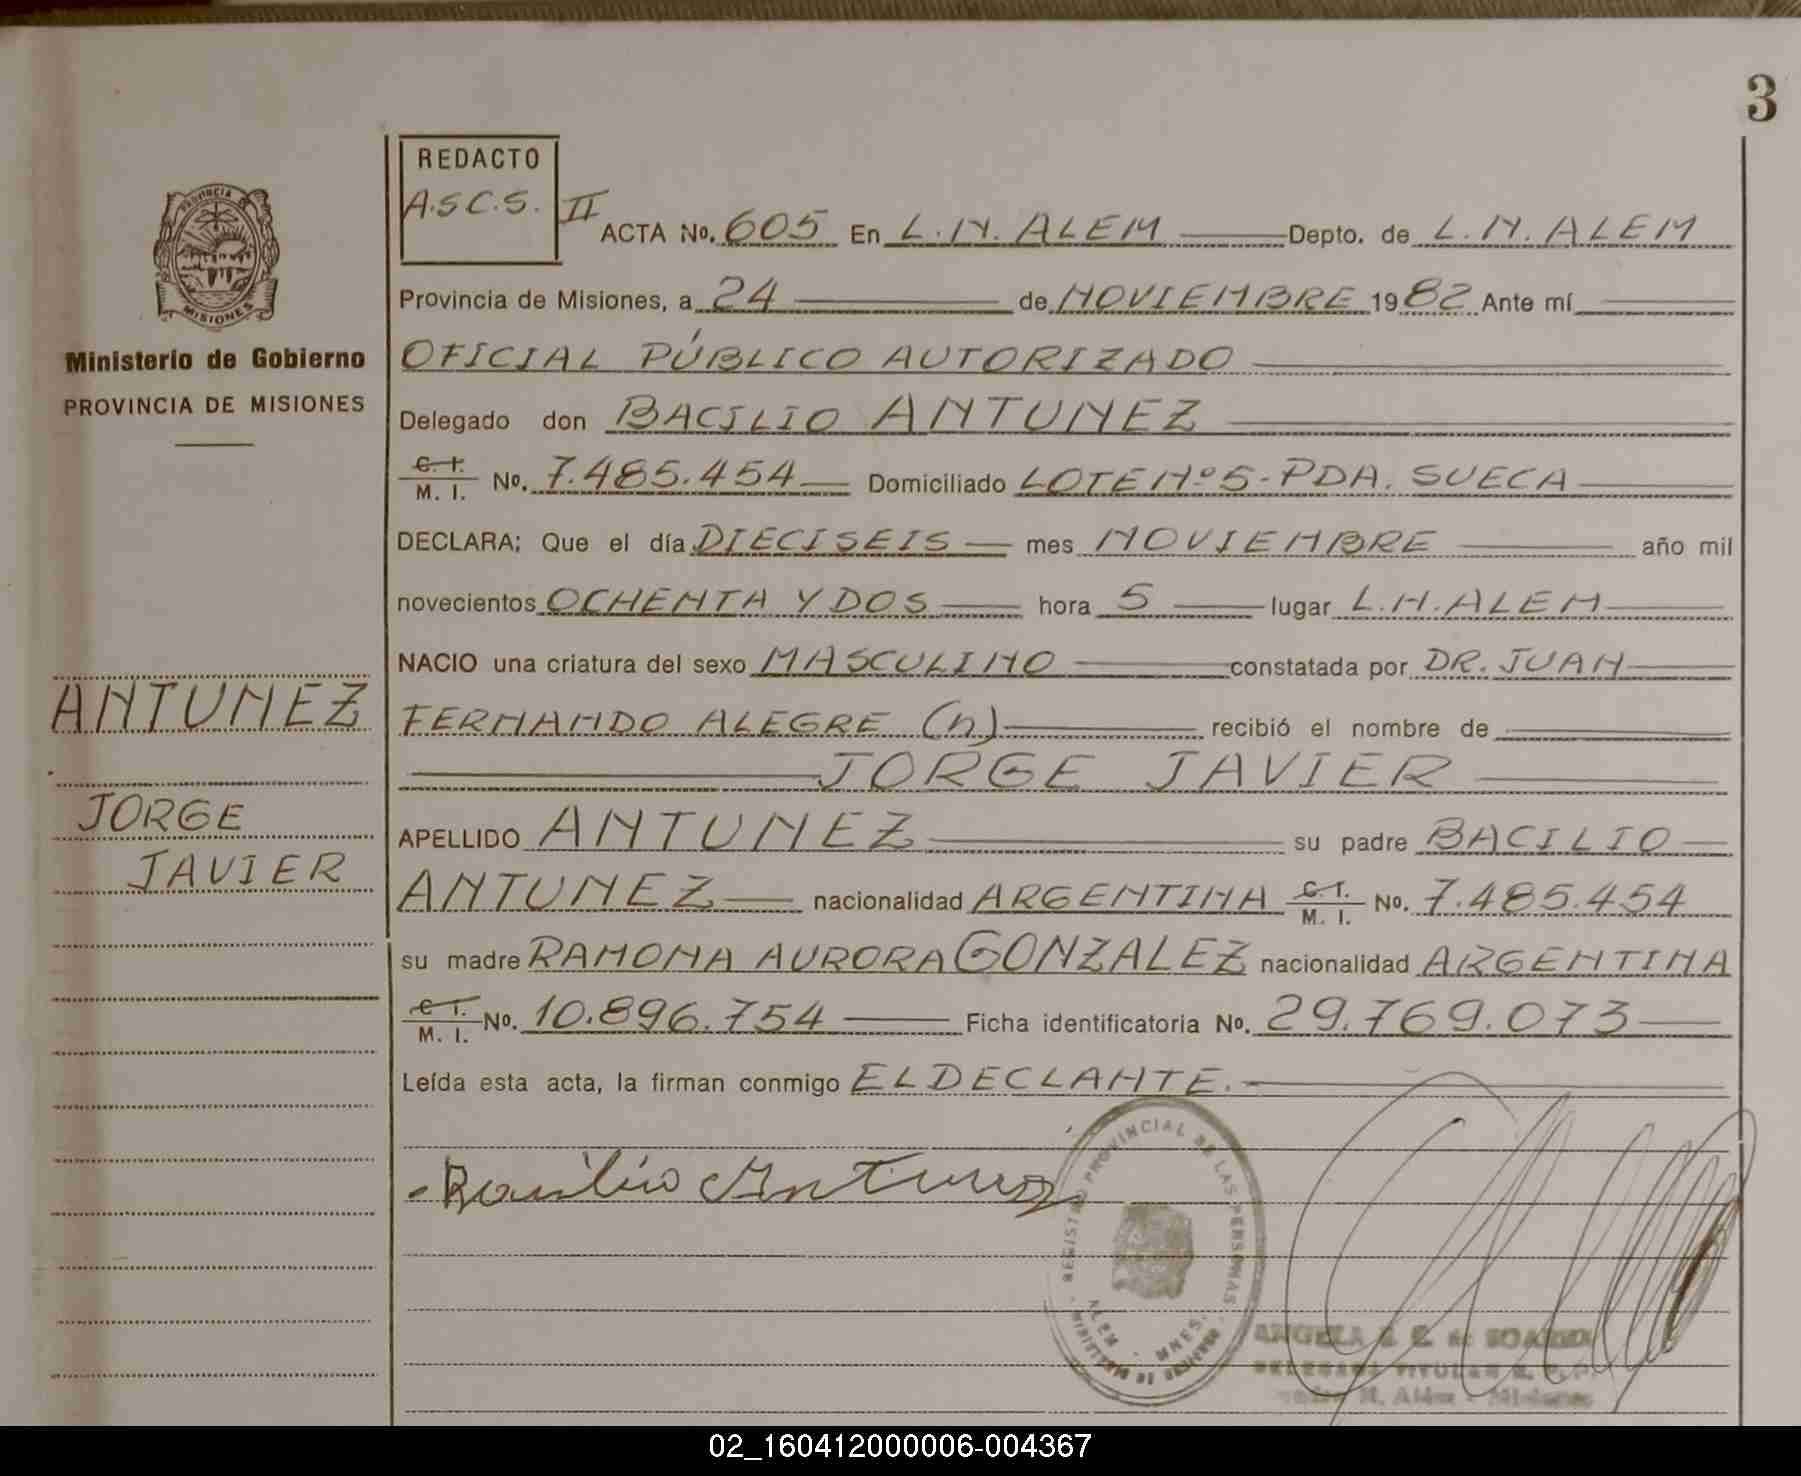 3
REDACTO
A.S.C.S. II
ACTA No. 605 En L.N. ALEM Depto. de L.N. ALEM
Provincia de Misiones, a 24 de NOVIEMBRE 1982 Ante mí
OFICIAL PÚBLICO AUTORIZADO
Delegado don BACILIO ANTUNEZ
C. I. M. I. No. 7.485.454 Domiciliado LOTE Nº 5 - PDA. SUECA
DECLARA: Que el día DIECISEIS mes NOVIEMBRE año mil
novecientos OCHENTA Y DOS hora 5 lugar L.N. ALEM
NACIO una criatura del sexo MASCULINO constatada por DR. JUAN
FERNANDO ALEGRE (n) recibió el nombre de
JORGE JAVIER
APELLIDO ANTUNEZ su padre BACILIO
ANTUNEZ nacionalidad ARGENTINA C. I. M. I. No. 7.485.454
su madre RAMONA AURORA GONZALEZ nacionalidad ARGENTINA
C. I. M. I. No. 10.896.754 Ficha identificatoria No. 29.769.073
Leída esta acta, la firman conmigo EL DECLANTE.
Bacilio Antunez
PROVINCIA
MISIONES
Ministerio de Gobierno
PROVINCIA DE MISIONES
ANTUNEZ
JORGE
JAVIER
REGISTRO PROVINCIAL DE LAS PERSONAS
ALEM - MNES.
MINISTERIO DE GOBIERNO
ANGELA de
DELEGADA TITULAR R. P. P.
N. Alem - Misiones
02_160412000006-004367